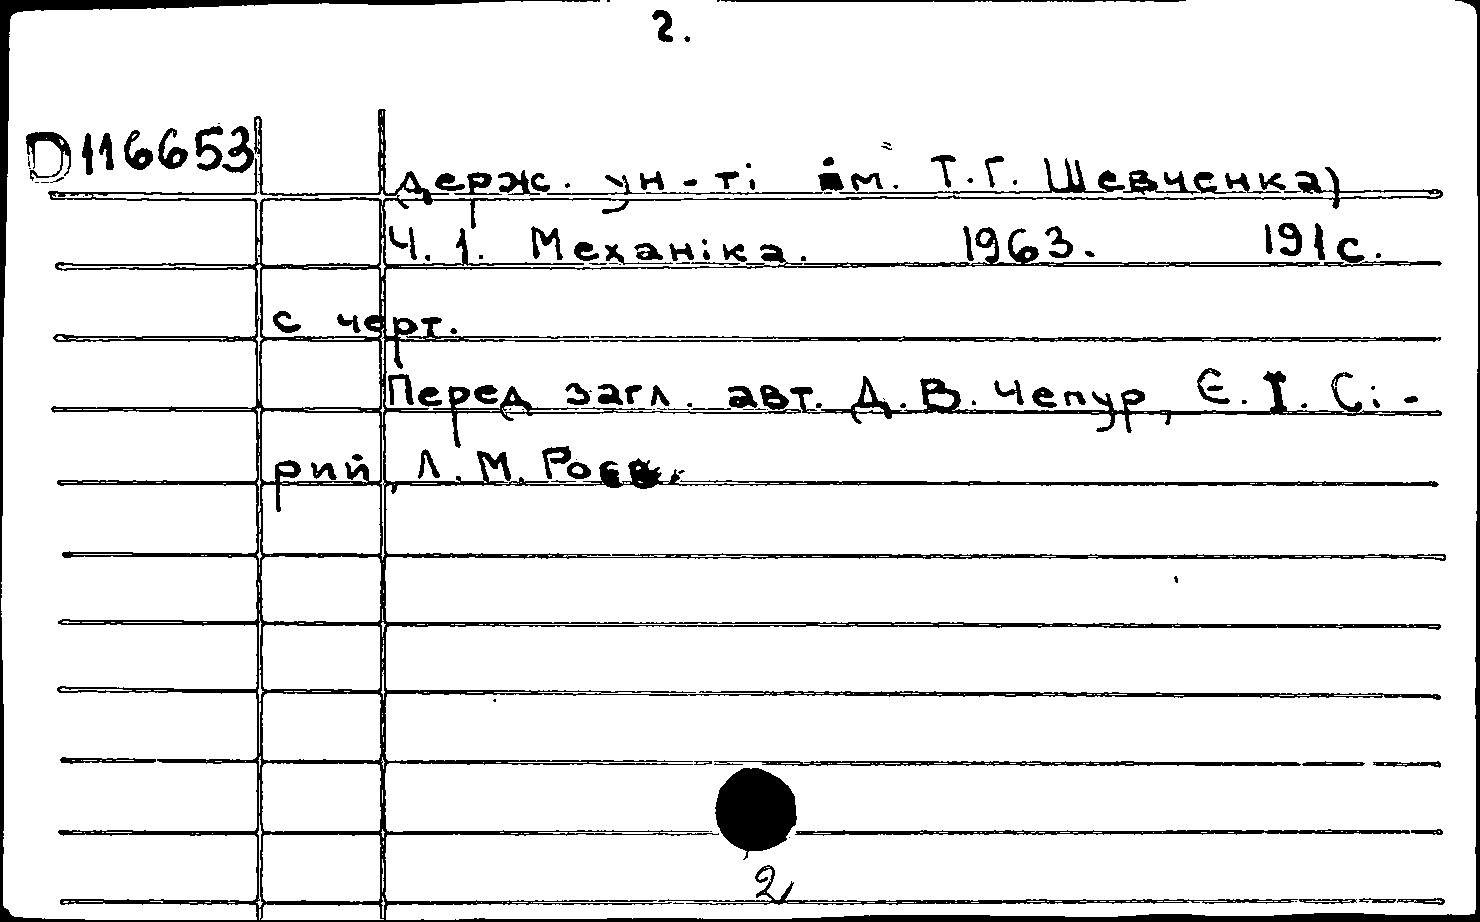 2.
D116653
держ. ун-ті ім. Т.Г. Шевченка)
Ч. 1. Механіка. 1963. 191с.
с черт.
Перед загл. авт. Д.В. Чепур, Є.І. Сі-
рий, Л.М.
2